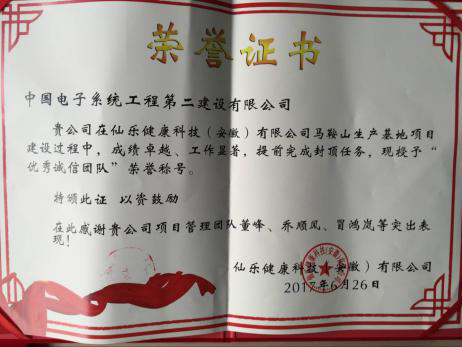 荣誉证书
中国电子系统工程第二建设有限公司
贵公司在仙乐健康科技（安徽）有限公司马鞍山生产基地项目
建设过程中，成绩卓越、工作显著，提前完成封顶任务，现授予“
优秀诚信团队” 荣誉称号。
特颁此证 以资鼓励
在此感谢贵公司项目管理团队董峰、乔顺风、冒鸿岚等突出表
现！
仙乐健康科技（安徽）有限公司
2017年6月26日